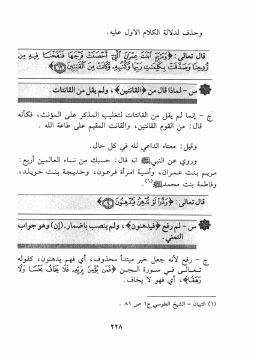 وحذف لدلالة الكلام الاول عليه.
قال تعالى: ﴿وَمَرْيَمَ ابْنَتَ عِمْرَانَ الَّتِي أَحْصَنَتْ فَرْجَهَا فَنَفَخْنَا فِيهِ مِن
رُّوحِنَا وَصَدَّقَتْ بِكَلِمَاتِ رَبِّهَا وَكُتُبِهِ وَكَانَتْ مِنَ الْقَانِتِينَ﴾
س - لماذا قال من ﴿القانتين﴾، ولم يقل من القانتات.
ج - إنما لم يقل من القانتات لتغليب المذكر على المؤنث، فكأنه
قال: من القوم القانتين، والقانت المقيم على طاعة الله .
وقيل: معناه الداعي لله في كل حال.
وروي عن النبي ﷺ انه قال: حسبك من نساء العالمين أربع:
مريم بنت عمران، وآسية امرأة فرعون، وخديجة بنت خويلد،
وفاطمة بنت محمد ﷺ(١)
قال تعالى: ﴿وَدُّوا لَوْ تُدْهِنُ فَيُدْهِنُونَ﴾
س - لم رفع ﴿فيدهنون﴾، ولم ينصب باضمار، (إن) وهو جواب
التمني.
ج - رفع لأنه جعل خبر مبتدأ محذوف، أي فهم يدهنون، كقوله
تعالى في سورة الجن ﴿فَمَن يُؤْمِن بِرَبِّهِ فَلَا يَخَافُ بَخْسًا وَلَا
رَهَقًا﴾، أي فهو لا يخاف.
(١) التبيان - الشيخ الطوسي ج١ ص ٨١ .
٢٢٨